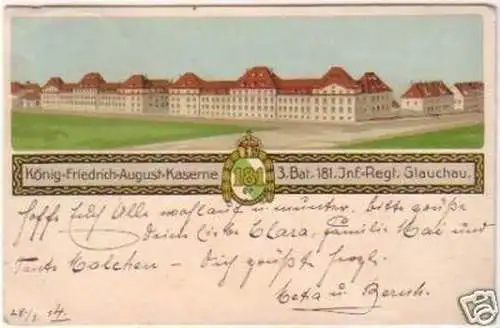 König-Friedrich-August-Kaserne 181 3. Bat. 181. Inf.-Regt. Glauchau.
hoffe Euch Alle wohlauf u. munter. bitte grüße
deine liebe Clara, Familie Mai und
Tante Malchen - Dich grüßt herzl.
Meta u.
28/ 14.
ebay